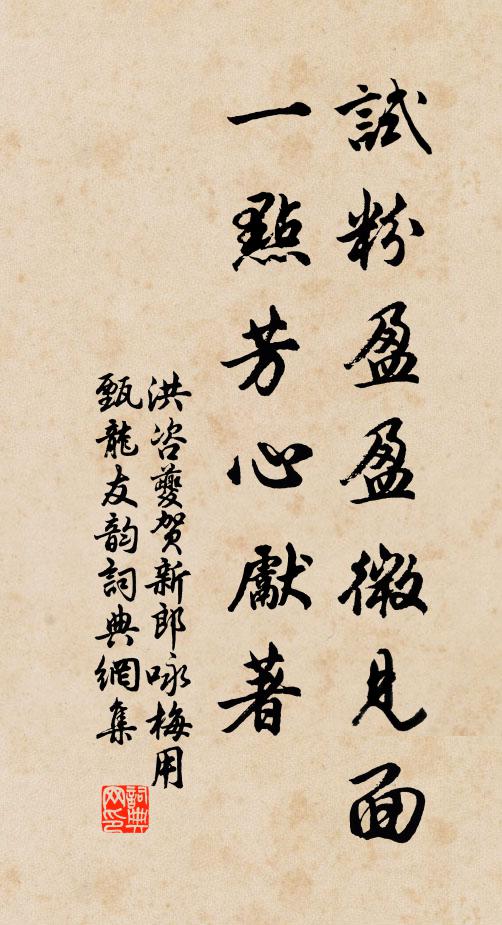 試粉盈盈微見面
一點芳心獻著
洪咨夔賀新郎咏梅用
甄龍友韵詞典網集
詞典网印